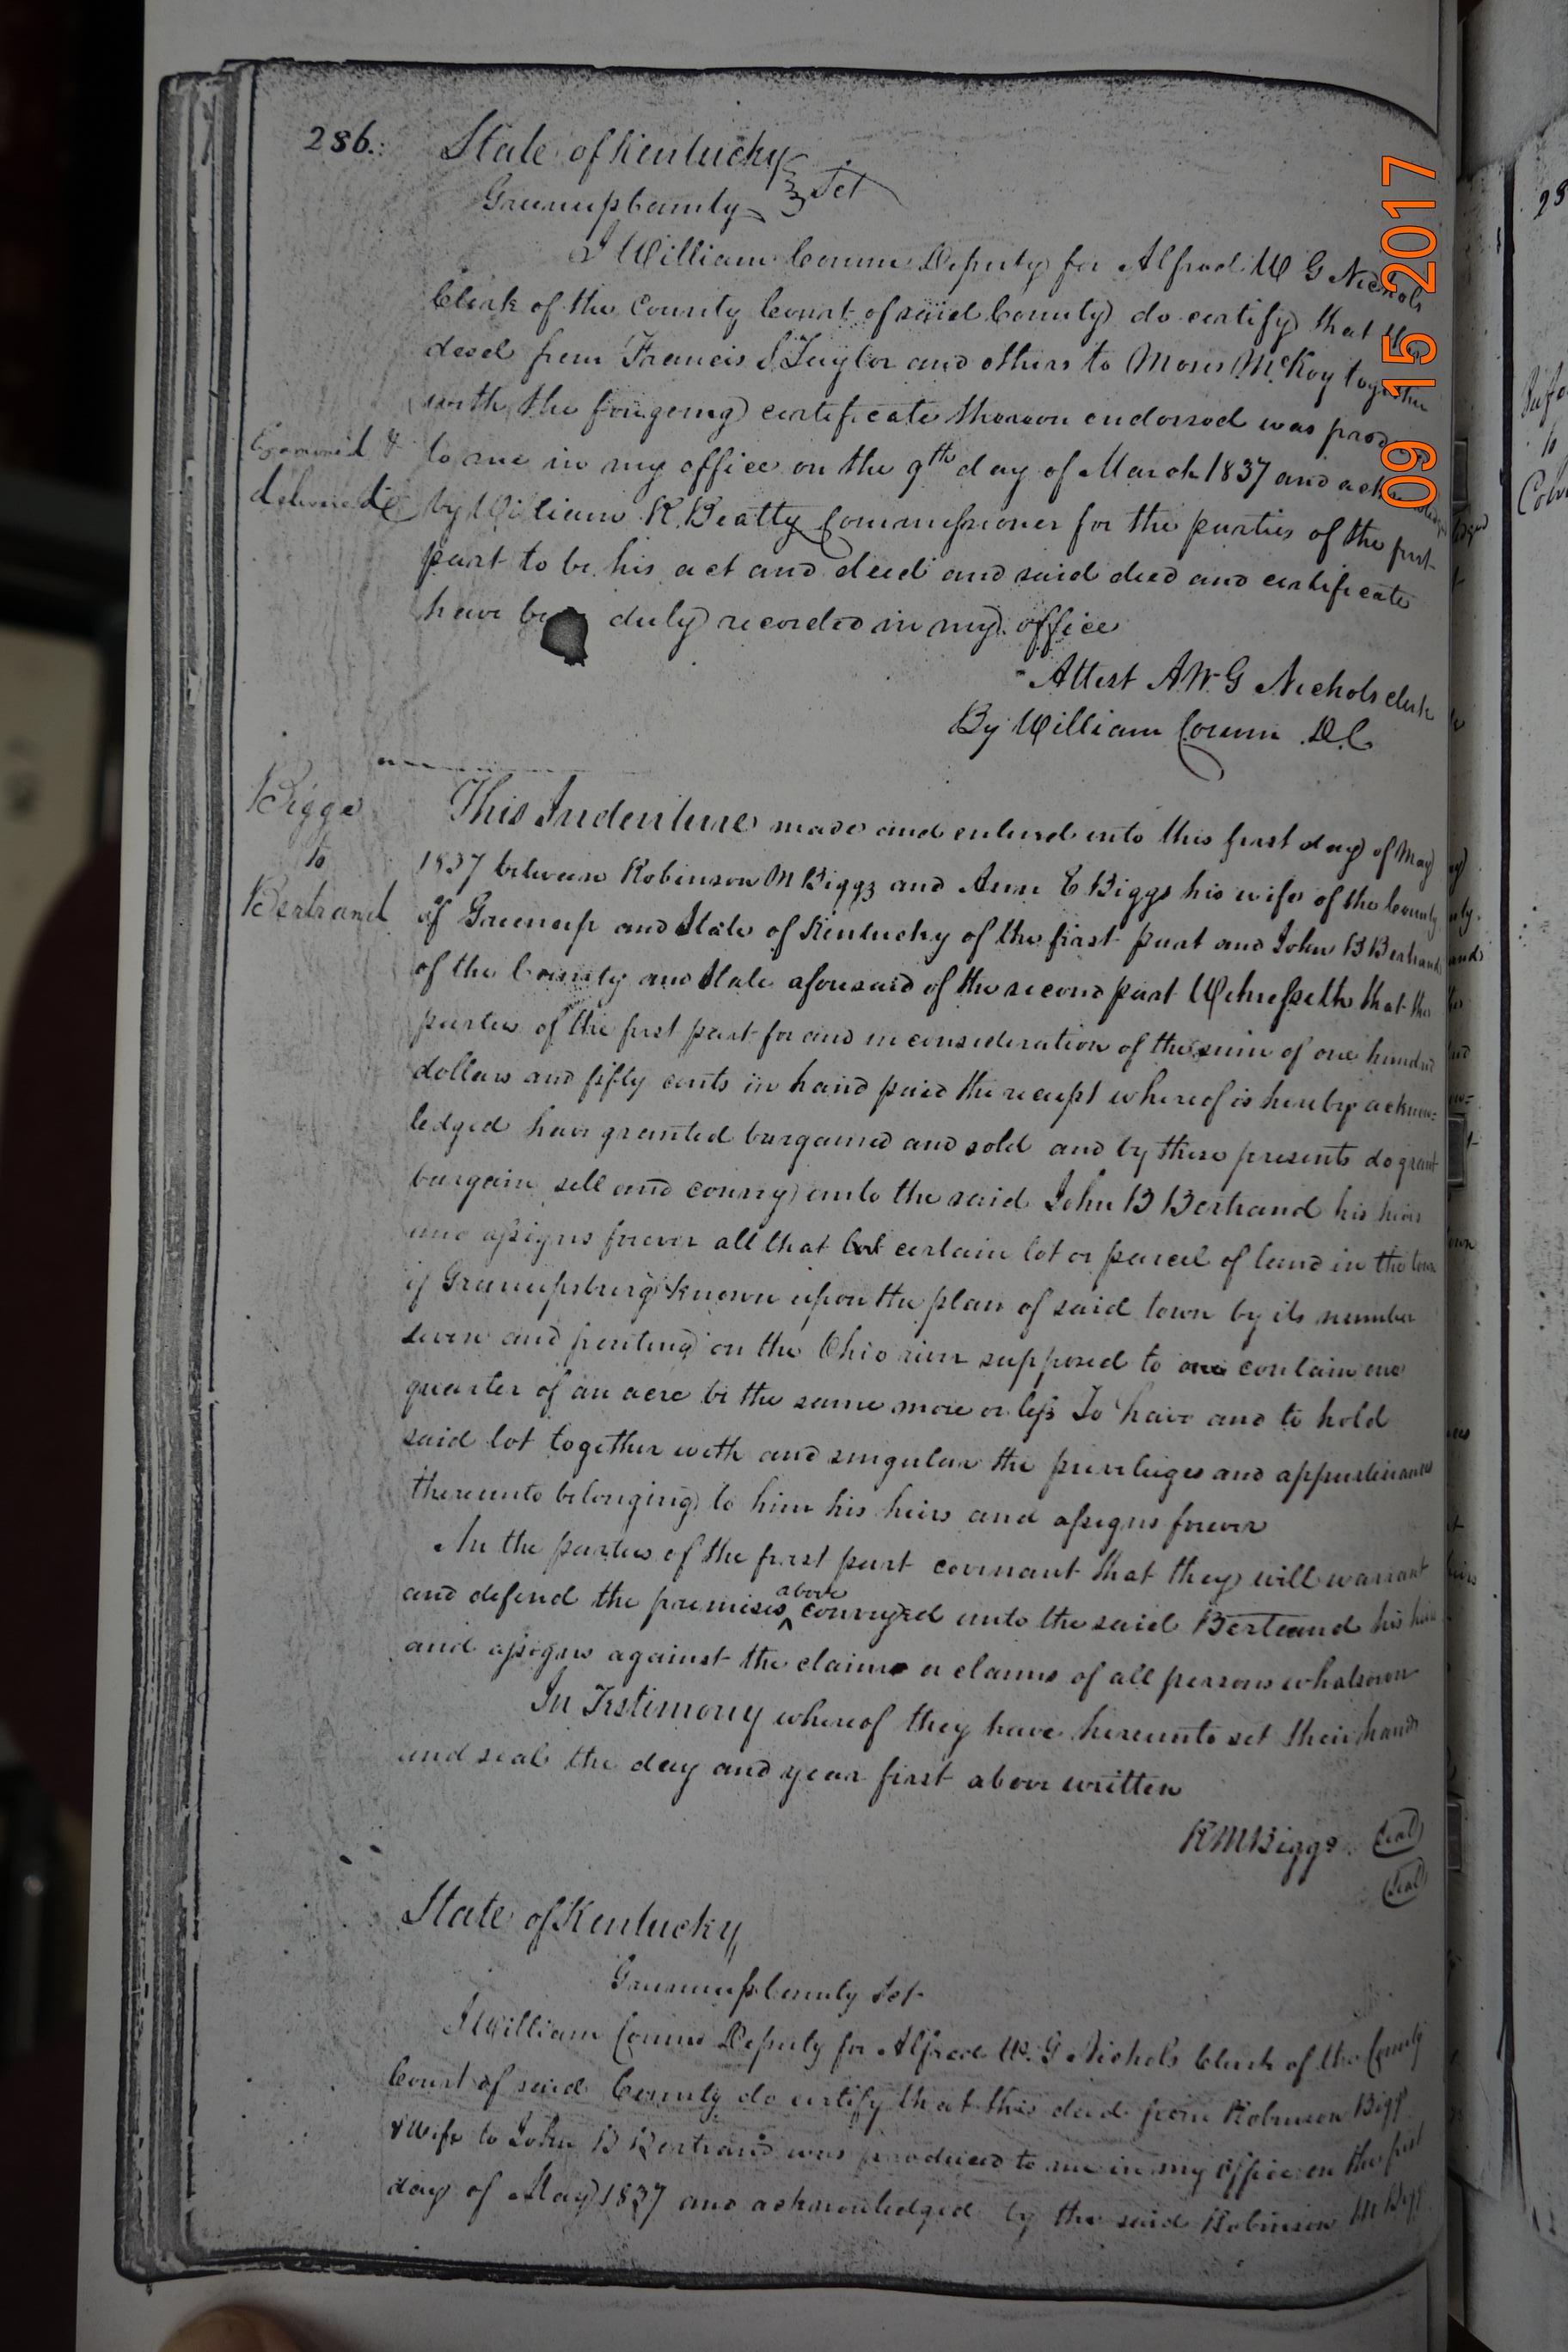 286.:
State of Kentucky
Greenup County Sct
I William Corum Deputy for Alfred W G Nichols
Clerk of the County Court of said County do certify that the
deed from Francis S Taylor and others to Moses McKoy together
with the foregoing certificate thereon endorsed was prod
Examined & to me in my office on the 9th day of March 1837 and ack
delivered by William K. Beatty Commissioner for the parties of the first
part to be his act and deed and said deed and certificate
have be duly recorded in my office
Attest A W. G Nichols clerk
By William Corum D.C
Biggs
to
Bertrand
This Indenture made and entered into this first day of May
1837 between Robinson M Biggs and Anne E Biggs his wife of the County
of Greenup and State of Kentucky of the first part and John B Bertrand
of the County and State aforesaid of the second part Witnesseth that the
parties of the first part for and in consideration of the sum of one hundred
dollars and fifty cents in hand paid the receipt whereof is hereby acknow=
ledged have granted bargained and sold and by these presents do grant
bargain sell and convey unto the said John B Bertrand his heirs
and assigns forever all that certain lot or parcel of land in the town
of Greenupsburg known upon the plan of said town by its number
seven and fronting on the Ohio river supposed to contain one
quarter of an acre be the same more or less To have and to hold
said lot together with and singular the privileges and appurtenances
thereunto belonging to him his heirs and assigns forever
In the parties of the first part covenant that they will warrant
and defend the premises above conveyed unto the said Bertrand his heirs
and assigns against the claim or claims of all persons whatsoever
In Testimony whereof they have hereunto set their hands
and seal the day and year first above written
R M Biggs (Seal)
(Seal)
State of Kentucky
Greenup County Sct
I William Corum Deputy for Alfred W. G Nichols Clerk of the County
Court of said County do certify that this deed from Robinson Biggs
& wife to John B Bertrand was produced to me in my office on the first
day of May 1837 and acknowledged by the said Robinson M Biggs
09 15 2017